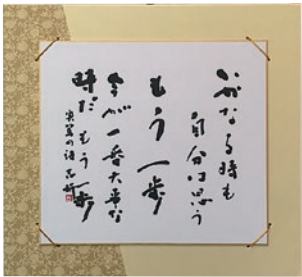 いかなる時も
自分は思う
もう一歩
今が一番大事な
時だ もう一歩
実篤の語